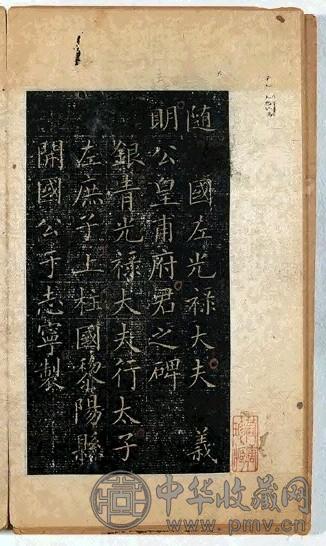 随 國左光禄大夫 義
明公皇甫府君之碑
銀青光禄大夫行太子
左庶子上柱國黎陽縣
開國公于志寧製
中华收藏网
www.pmv.cn